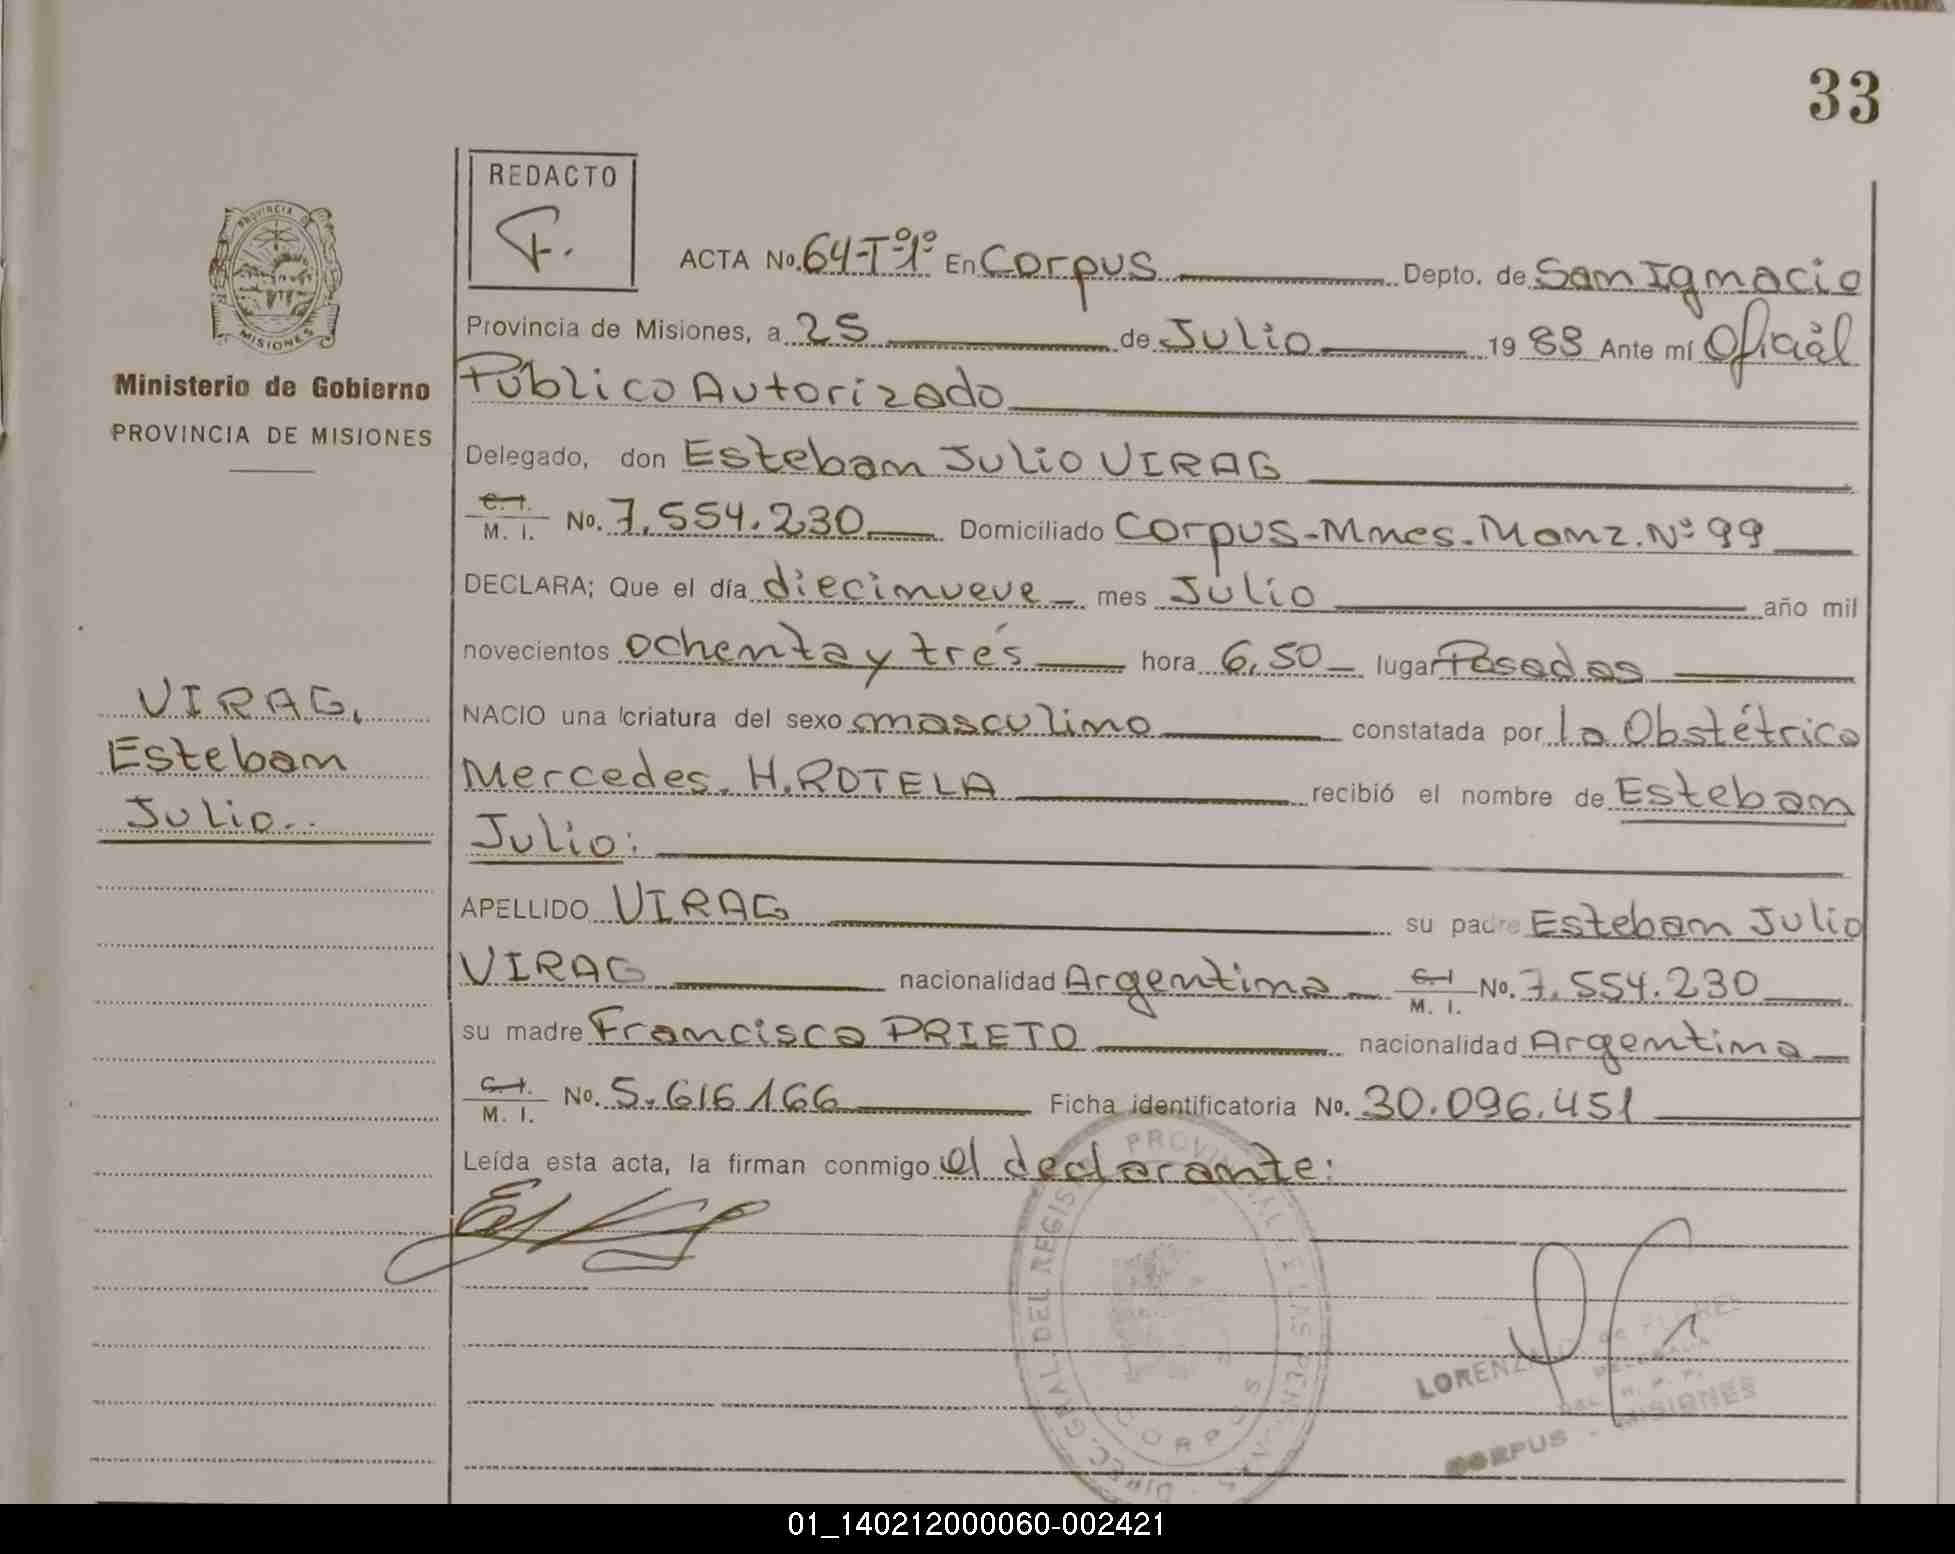 33
REDACTO
ACTA No. 64-Tº1º En Corpus Depto. de San Ignacio
Provincia de Misiones, a 25 de Julio 1983 Ante mí Oficial
Público Autorizado
PROVINCIA DE
MISIONES
Ministerio de Gobierno
PROVINCIA DE MISIONES
Delegado, don Esteban Julio VIRAG
C. I.
M. I. No. 7.554.230 Domiciliado Corpus-Mnes-Manz. Nº 99
DECLARA; Que el día diecinueve mes Julio año mil
novecientos ochenta y trés hora 6,50 lugar Posadas
NACIO una criatura del sexo masculino constatada por la Obstétrica
Mercedes. H. ROTELA recibió el nombre de Esteban
Julio:
VIRAG,
Esteban
Julio..
APELLIDO VIRAG su padre Esteban Julio
VIRAG nacionalidad Argentina C. I. M. I. No. 7.554.230
su madre Francisca PRIETO nacionalidad Argentina
C. I.
M. I. No. 5.616.166 Ficha identificatoria No. 30.096.451
Leída esta acta, la firman conmigo el declarante:
DIREC. GRAL. DEL REGIS PROVINCIAL
CORPUS
LORENZA de FLORES
DELEGADA
DEL R. P. P.
CORPUS - MISIONES
01_140212000060-002421